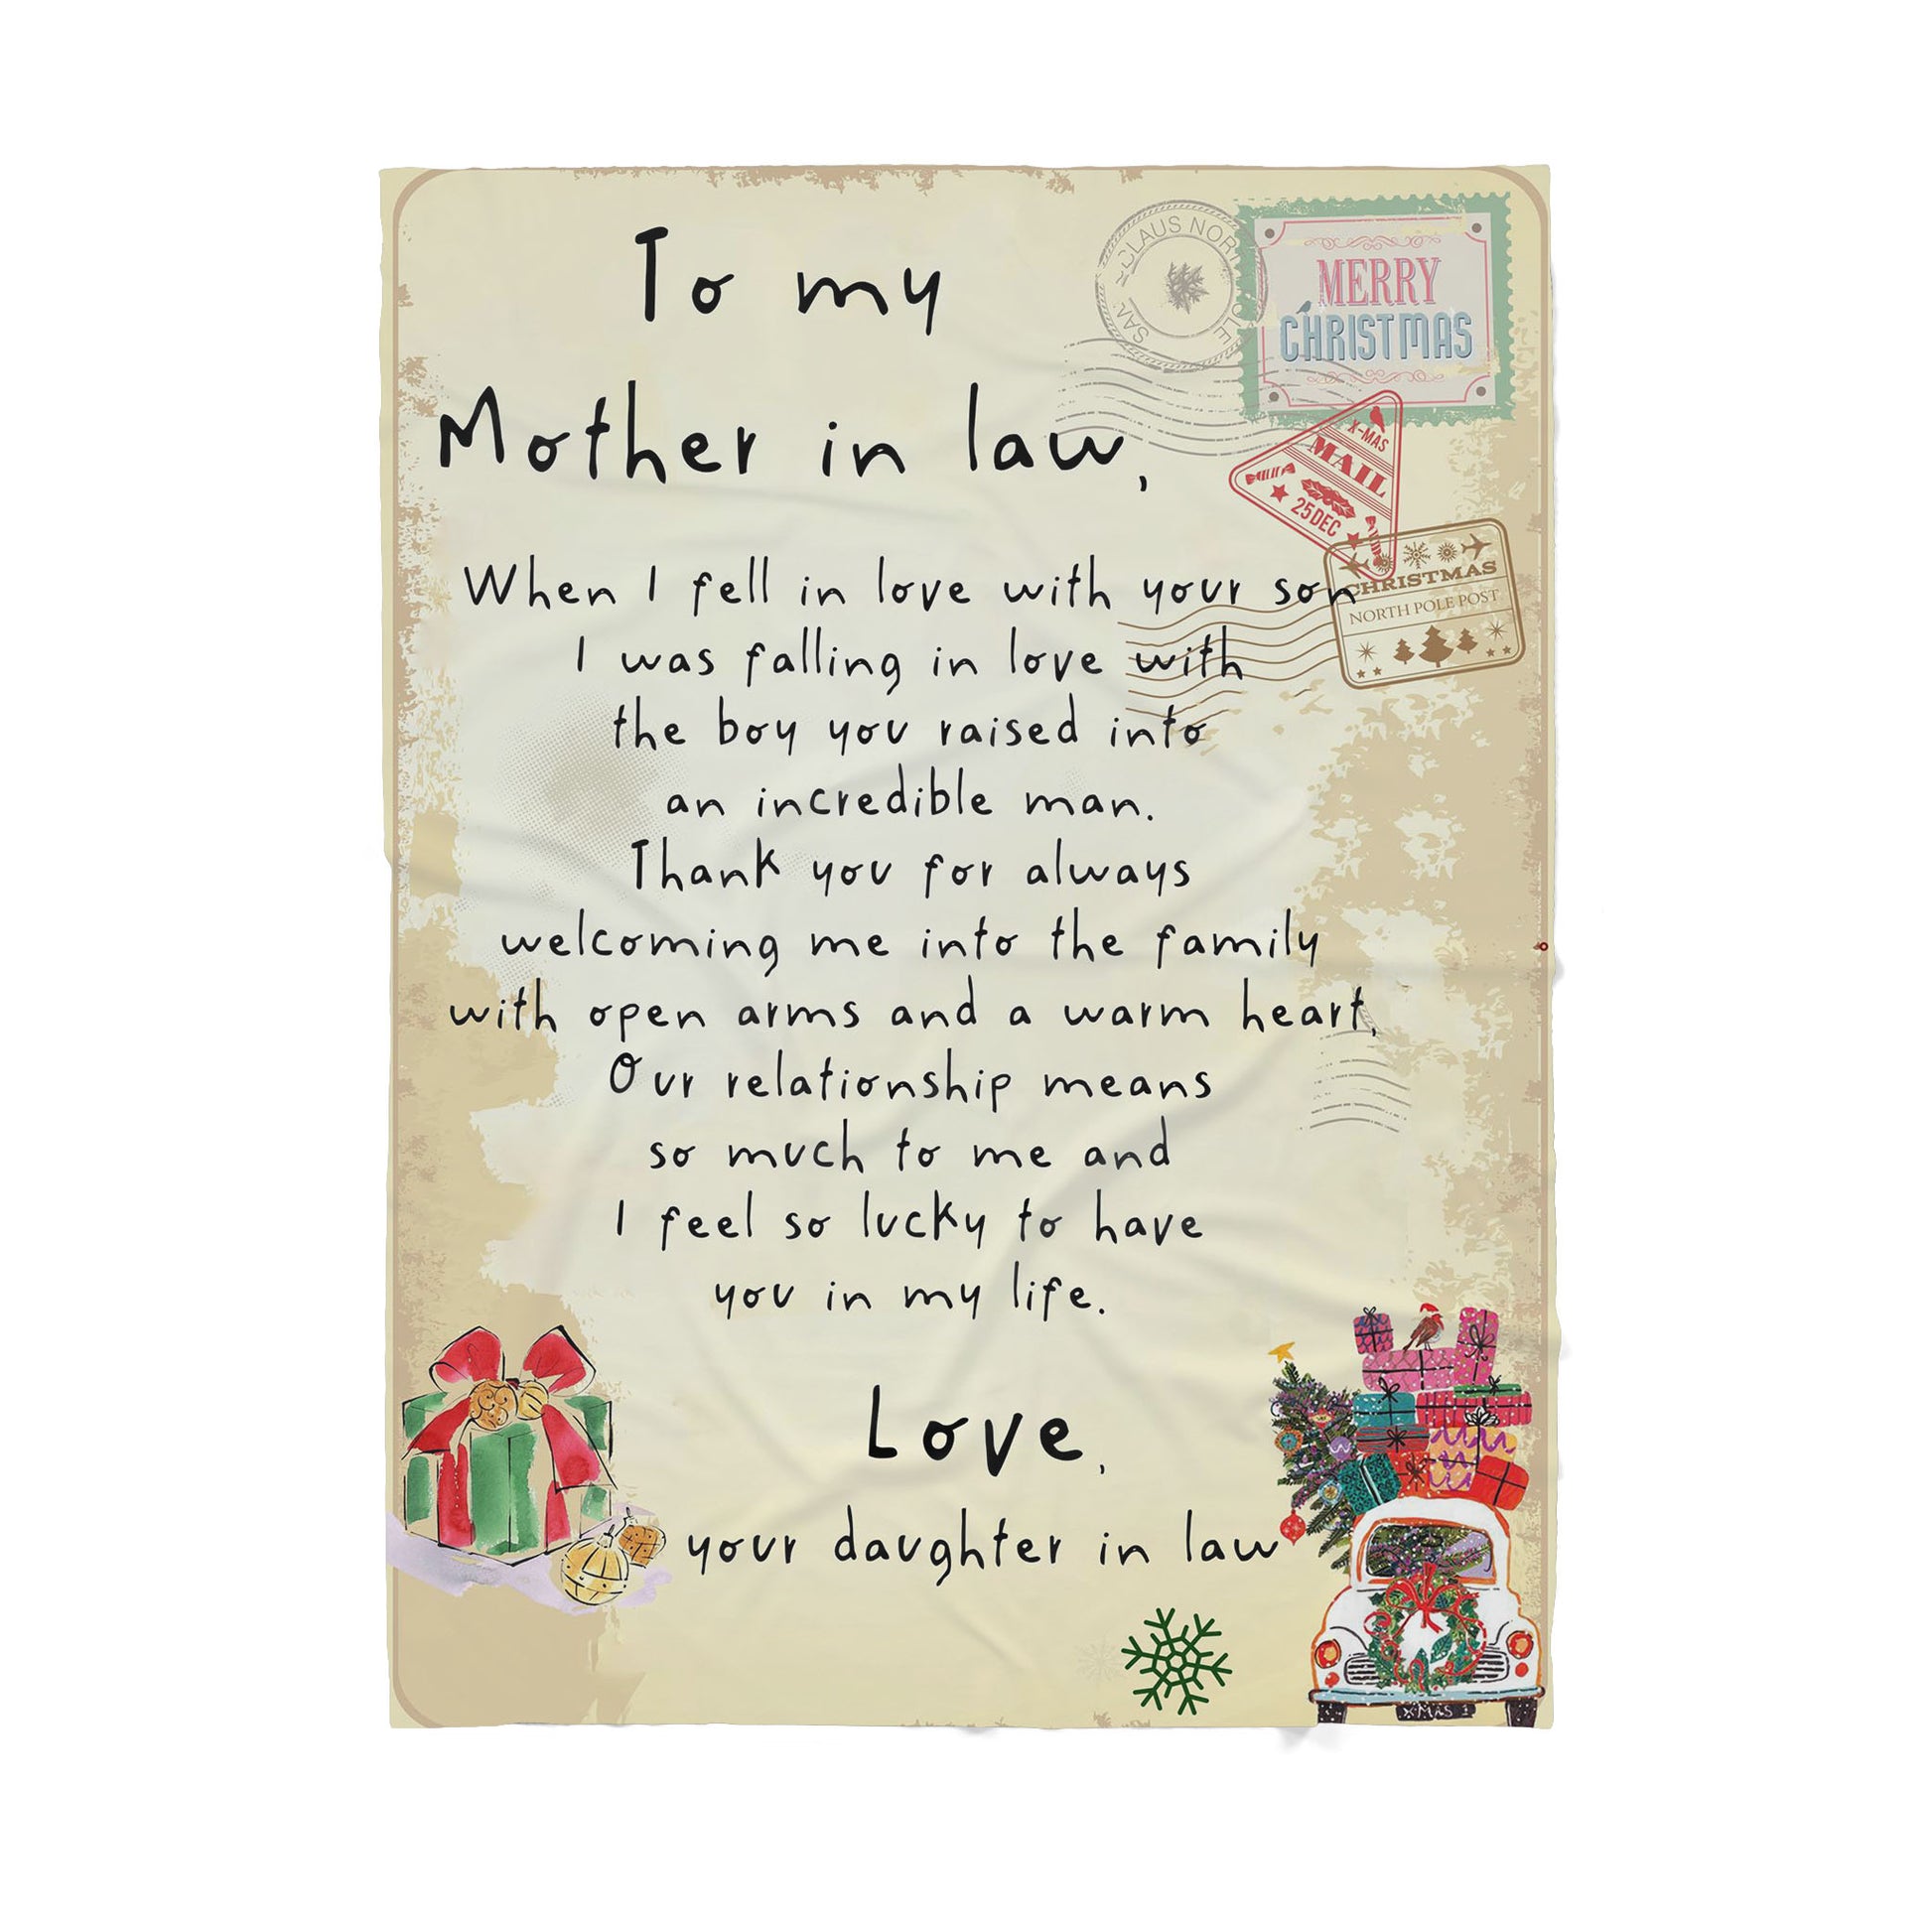 To my
Mother in law,
When I fell in love with your son
I was falling in love with
the boy you raised into
an incredible man.
Thank you for always
welcoming me into the family
with open arms and a warm heart,
Our relationship means
so much to me and
I feel so lucky to have
you in my life.
Love,
your daughter in law
CLAUS NOR
SAN
OLE
MERRY
CHRISTMAS
X-MAS
MAIL
25 DEC
CHRISTMAS
NORTH POLE POST
XMAS